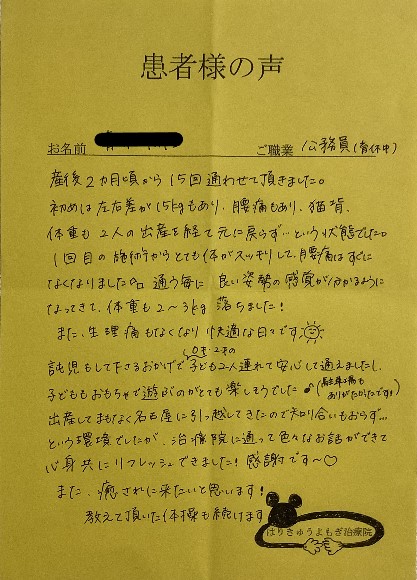 患者様の声
お名前
ご職業 公務員(育休中)
産後2カ月頃から15回通わせて頂きました。
初めは左右差が15kgもあり、腰痛もあり、猫背、
体重も2人の出産を経て元に戻らず…という状態でした。
1回目の施術からとても体がスッキリして、腰痛はすぐに
なくなりました。通う毎に良い姿勢の感覚が分かるように
なってきて、体重も2～3kg落ちました!
また、生理痛もなくなり快適な日々です
託児もして下さるおかげで子ども2人連れて安心して通えましたし、
0才・2才の
子どももおもちゃで遊ぶのがとても楽しそうでした♪
(駐車場も
ありがたかったです!)
出産してまもなく名古屋に引っ越してきたので知り合いもおらず…
という環境でしたが、治療院に通って色々なお話ができて
心身共にリフレッシュできました!感謝です～♡
また、癒されに来たいと思います!
教えて頂いた体操も続けます
はりきゅうよもぎ治療院